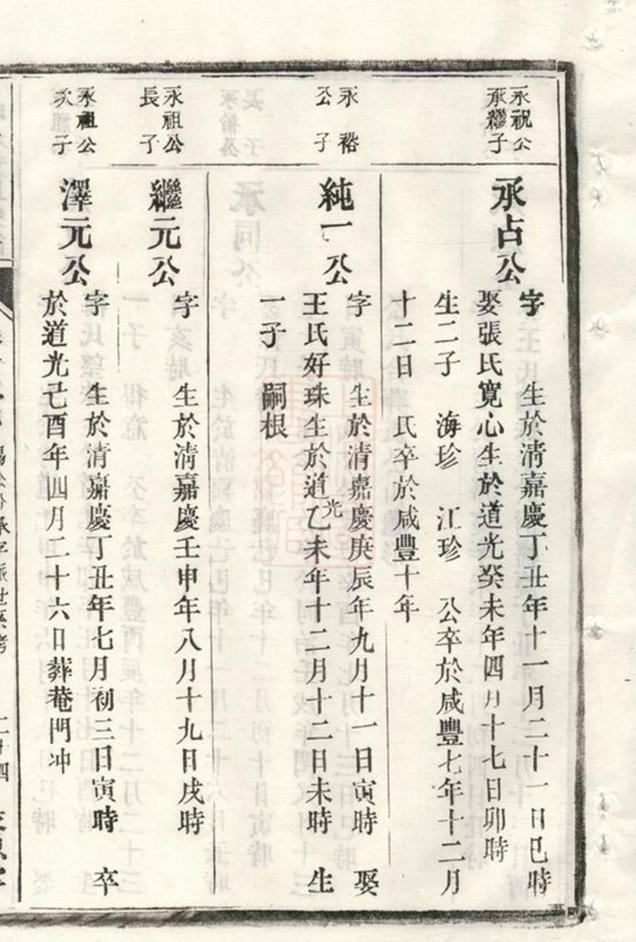 永祝公
承繼子
承占公
字　生於淸嘉慶丁丑年十一月二十一日巳時
娶張氏寬心生於道光癸未年四月十七日卯時
生二子　海珍　江珍　公卒於咸豐七年十二月
十二日　氏卒於咸豐十年
永裕
公子
純一公
字　生於淸嘉慶庚辰年九月十一日寅時　娶
王氏好珠生於道光乙未年十二月十二日未時　生
一子　嗣根
永祖公
長子
繼元公
字　生於淸嘉慶壬申年八月十九日戌時
永祖公
次子
澤元公
字　生於淸嘉慶丁丑年七月初三日寅時　卒
於道光己酉年四月二十六日葬菴門冲